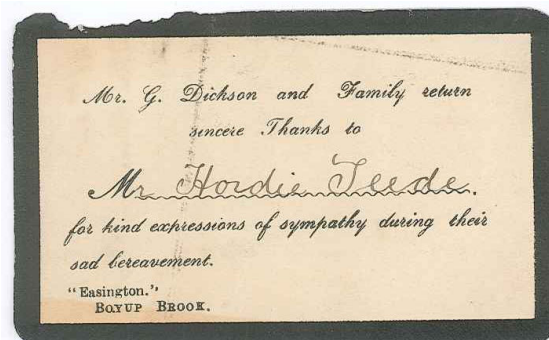 Mr. G. Dickson and Family return
sincere Thanks to
Mr Hordie Teede.
for kind expressions of sympathy during their
sad bereavement.
"Easington."
BOYUP BROOK.